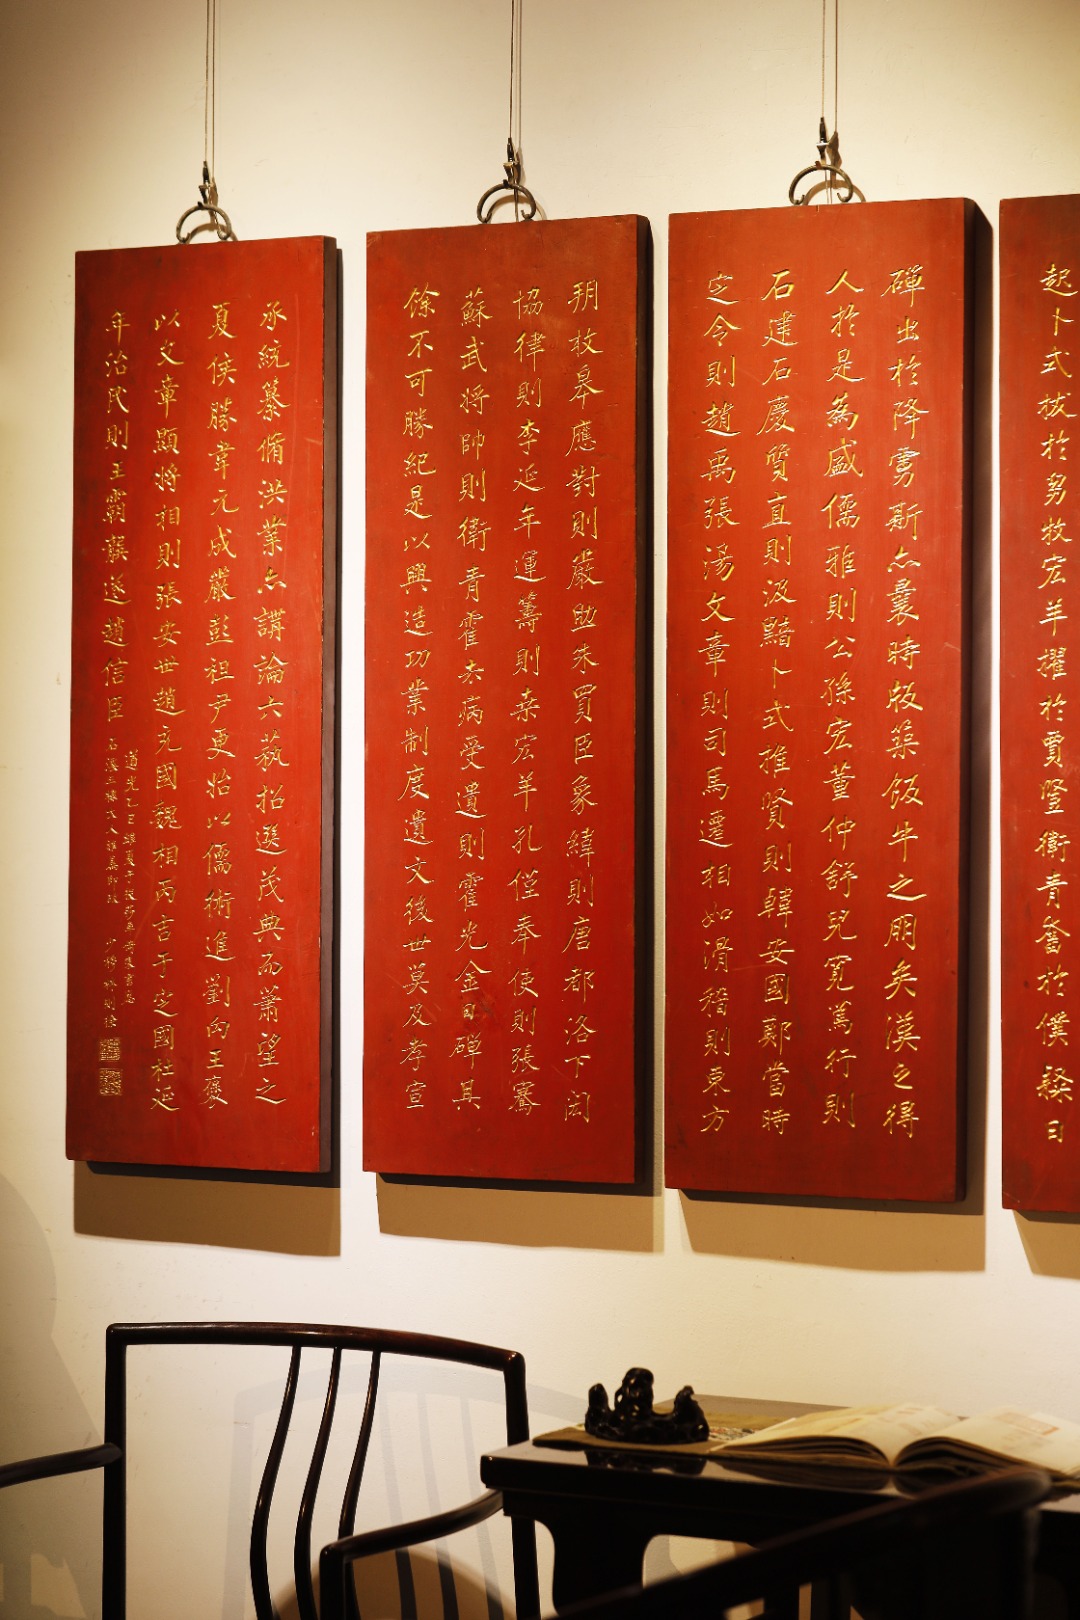 起卜式拔於芻牧宏羊擢於賈豎衛青奮於僕隸日
磾出於降虜斯亦曩時版築飯牛之朋矣漢之得
人於是為盛儒雅則公孫宏董仲舒兒寬篤行則
石建石慶質直則汲黯卜式推賢則韓安國鄭當時
定令則趙禹張湯文章則司馬遷相如滑稽則東方
朔枚皋應對則嚴助朱買臣象緯則唐都洛下閎
協律則李延年運籌則桑宏羊孔僅奉使則張騫
蘇武將帥則衛青霍去病受遺則霍光金日磾其
餘不可勝紀是以興造功業制度遺文後世莫及孝宣
承統纂脩洪業亦講論六蓺招選茂典而蕭望之
夏侯勝韋元成嚴彭祖尹更始以儒術進劉向王襃
以文章顯將相則張安世趙充國魏相丙吉于定國杜延
年治民則王霸龔遂趙信臣
道光乙巳
少穆林則徐